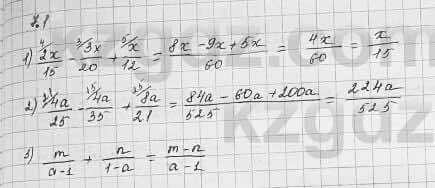 №1
1) ⁴⁾2x/15 - ³⁾3x/20 + ⁵⁾x/12 = (8x - 9x + 5x)/60 = 4x/60 = x/15
2) ²¹⁾4a/25 - ¹⁵⁾4a/35 + ²⁵⁾8a/21 = (84a - 60a + 200a)/525 = 224a/525
3) m/(a-1) + n/(1-a) = (m-n)/(a-1)